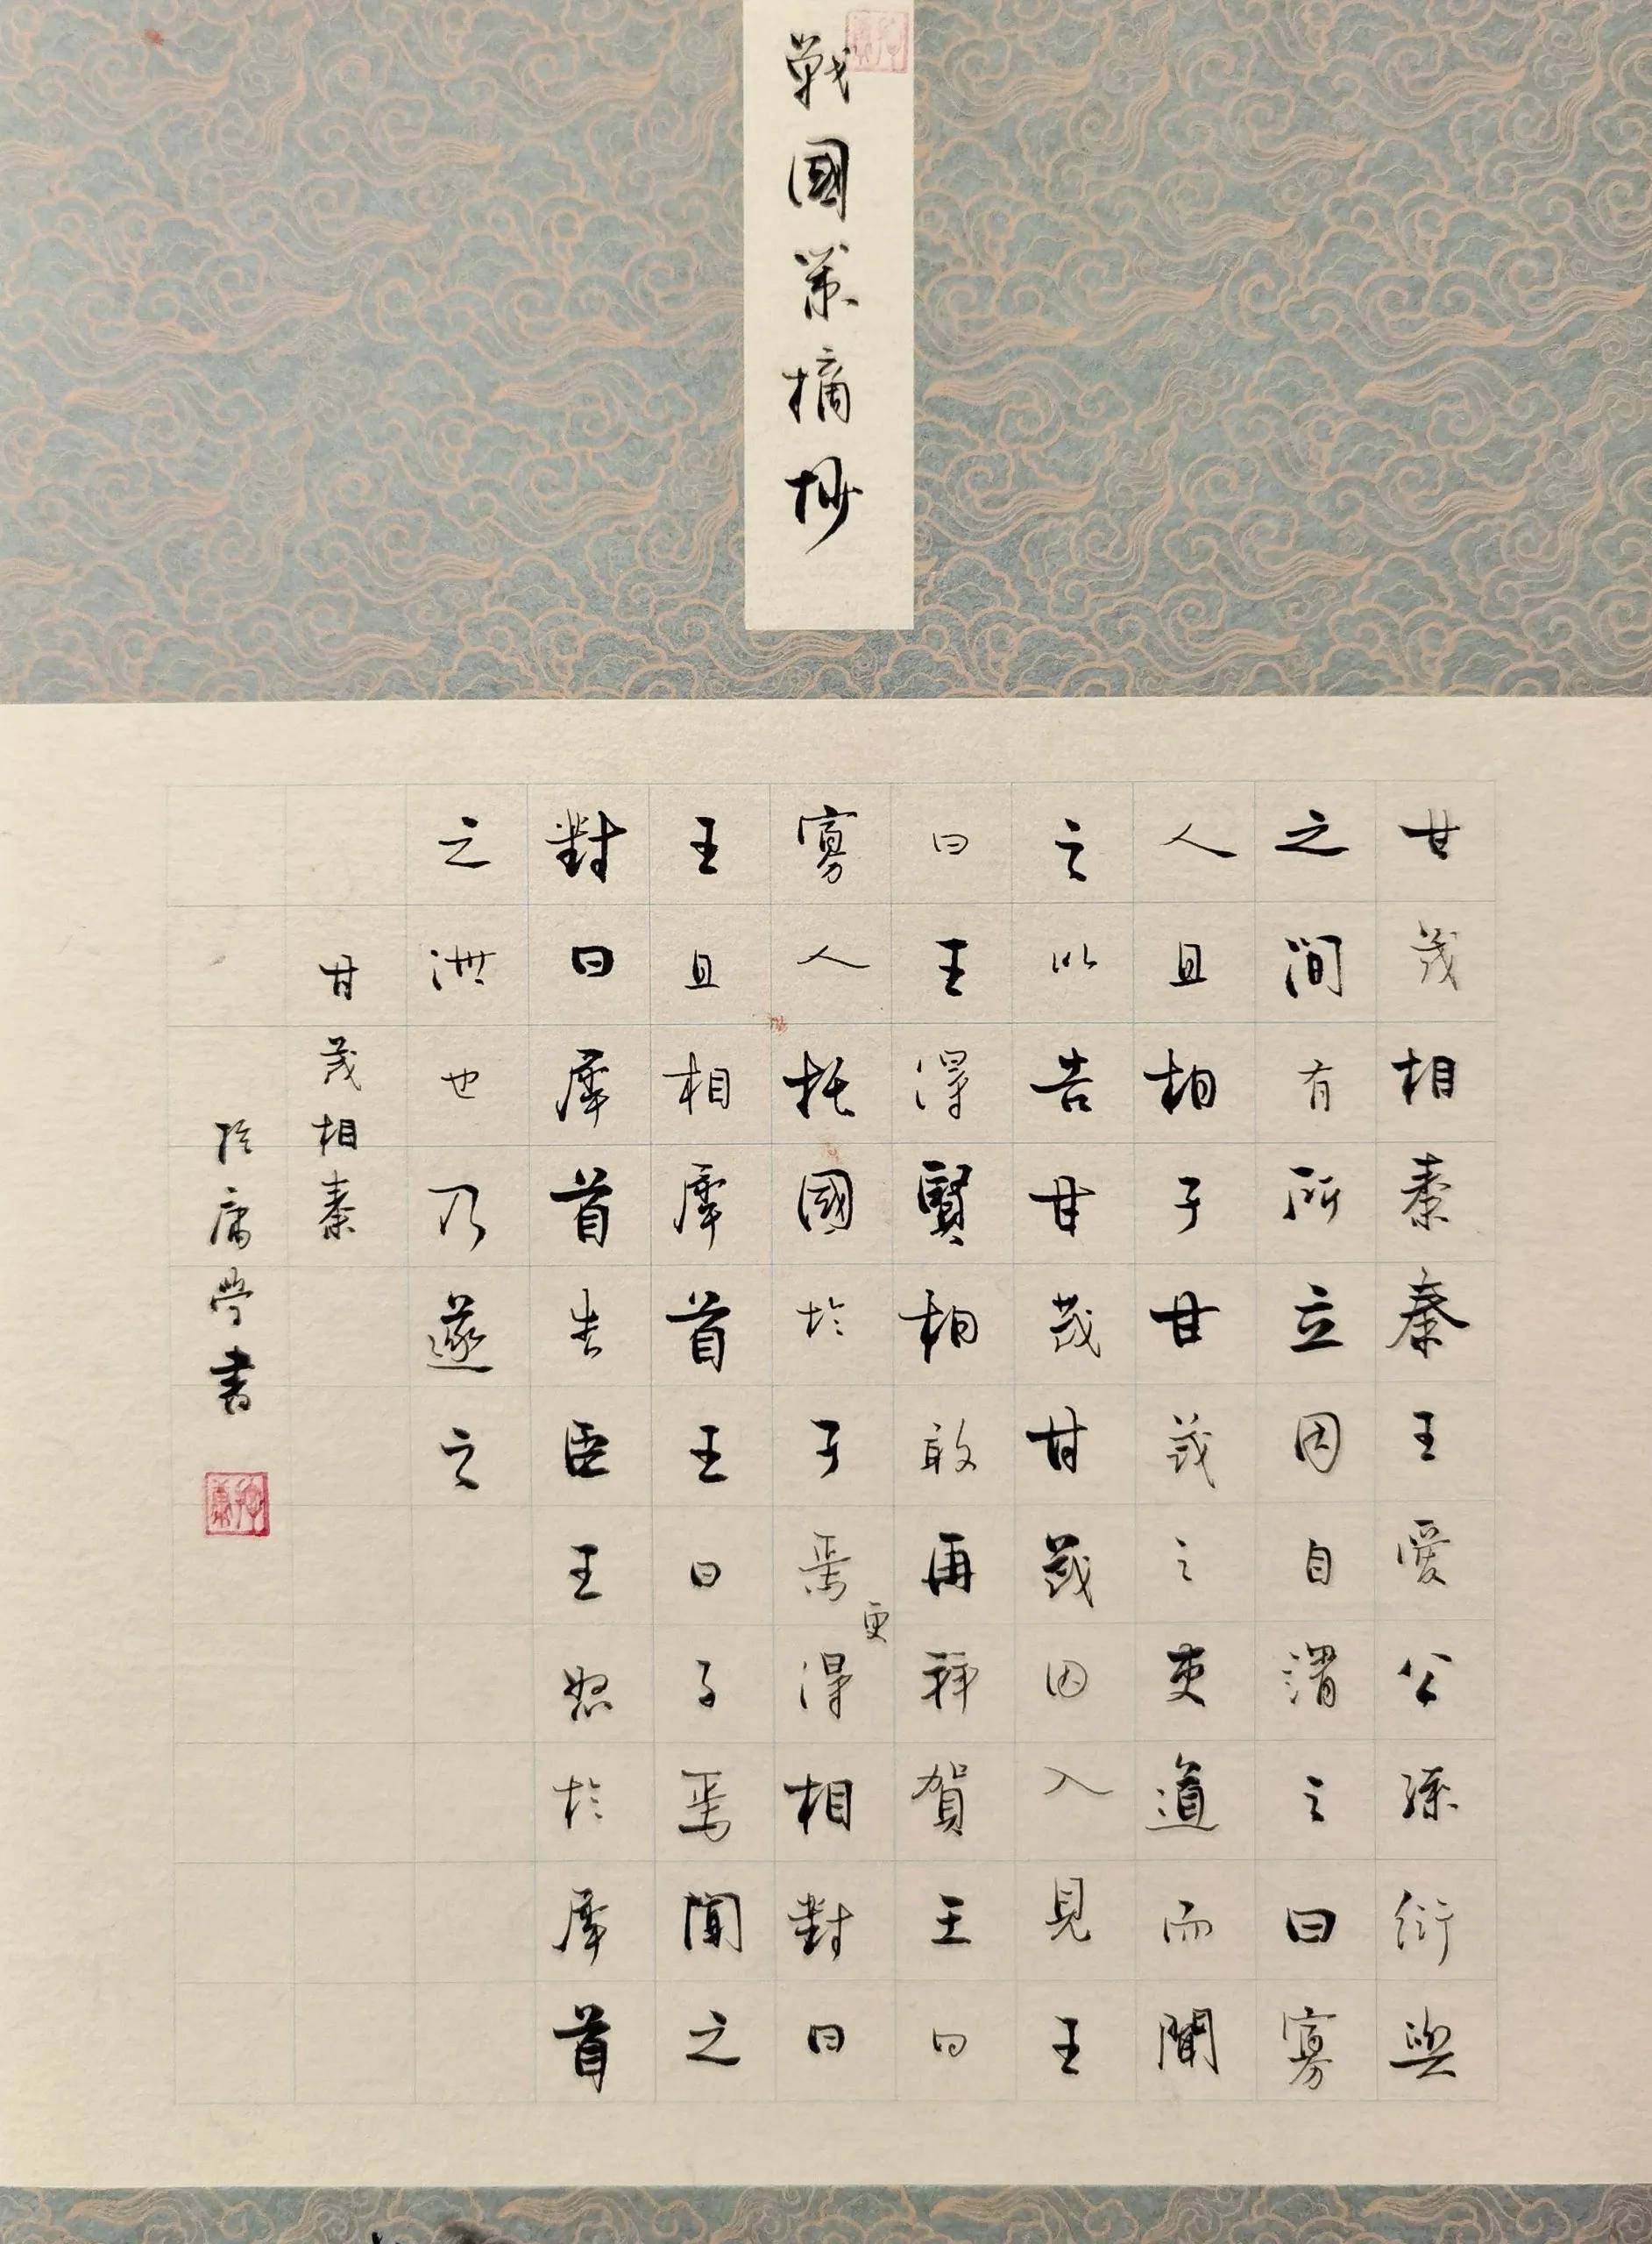 戰國策摘抄
甘茂相秦秦王愛公孫衍與
之間有所立因自謂之曰寡
人且相子甘茂之吏道而聞
之以告甘茂甘茂因入見王
曰王得賢相敢再拜賀王曰
寡人托國於子焉更得相對曰
王且相犀首王曰子焉聞之
對曰犀首告臣王怒於犀首
之泄也乃逐之
甘茂相秦
庸學書